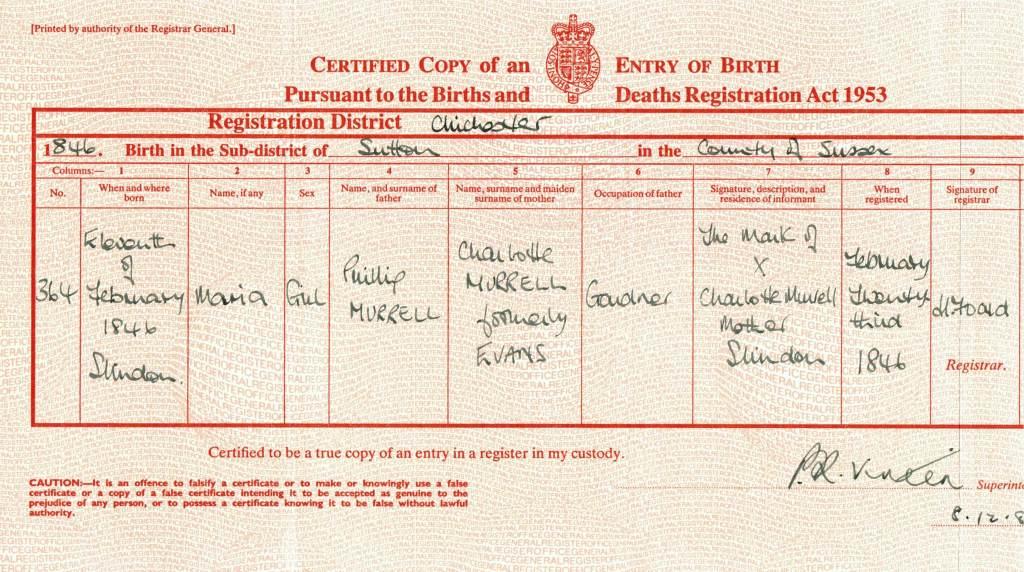 [Printed by authority of the Registrar General.]
CERTIFIED COPY of an ENTRY OF BIRTH
Pursuant to the Births and Deaths Registration Act 1953
Registration District Chichester
1846. Birth in the Sub-district of Sutton in the County of Sussex
Columns:— 1 2 3 4 5 6 7 8 9
No.
When and where born
Name, if any
Sex
Name, and surname of father
Name, surname and maiden surname of mother
Occupation of father
Signature, description, and residence of informant
When registered
Signature of registrar
364
Eleventh
of
February
1846
Slindon.
Maria
Girl
Phillip
MURRELL
Charlotte
MURRELL
formerly
EVANS
Gardner
The Mark of
X
Charlotte Murrell
Mother
Slindon
February
Twenty
third
1846
Registrar.
Certified to be a true copy of an entry in a register in my custody.
CAUTION:—It is an offence to falsify a certificate or to make or knowingly use a false
certificate or a copy of a false certificate intending it to be accepted as genuine to the
prejudice of any person, or to possess a certificate knowing it to be false without lawful
authority.
Superint
8.12.8